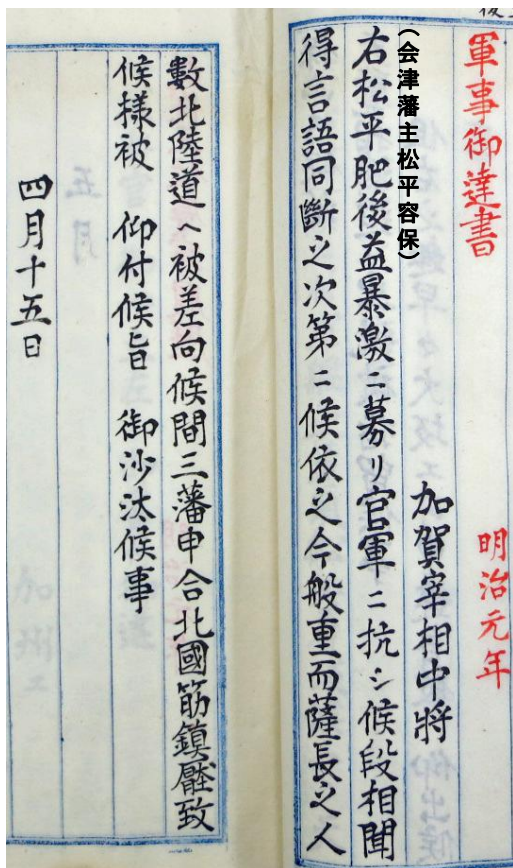 軍事御達書　明治元年
加賀宰相中将
(会津藩主松平容保)
右松平肥後益暴激ニ募リ官軍ニ抗シ候段相聞
得言語同斷之次第ニ候依之今般重而薩長之人
數北陸道ヘ被差向候間三藩申合北國筋鎮壓致
候様被　仰付候旨　御沙汰候事
四月十五日